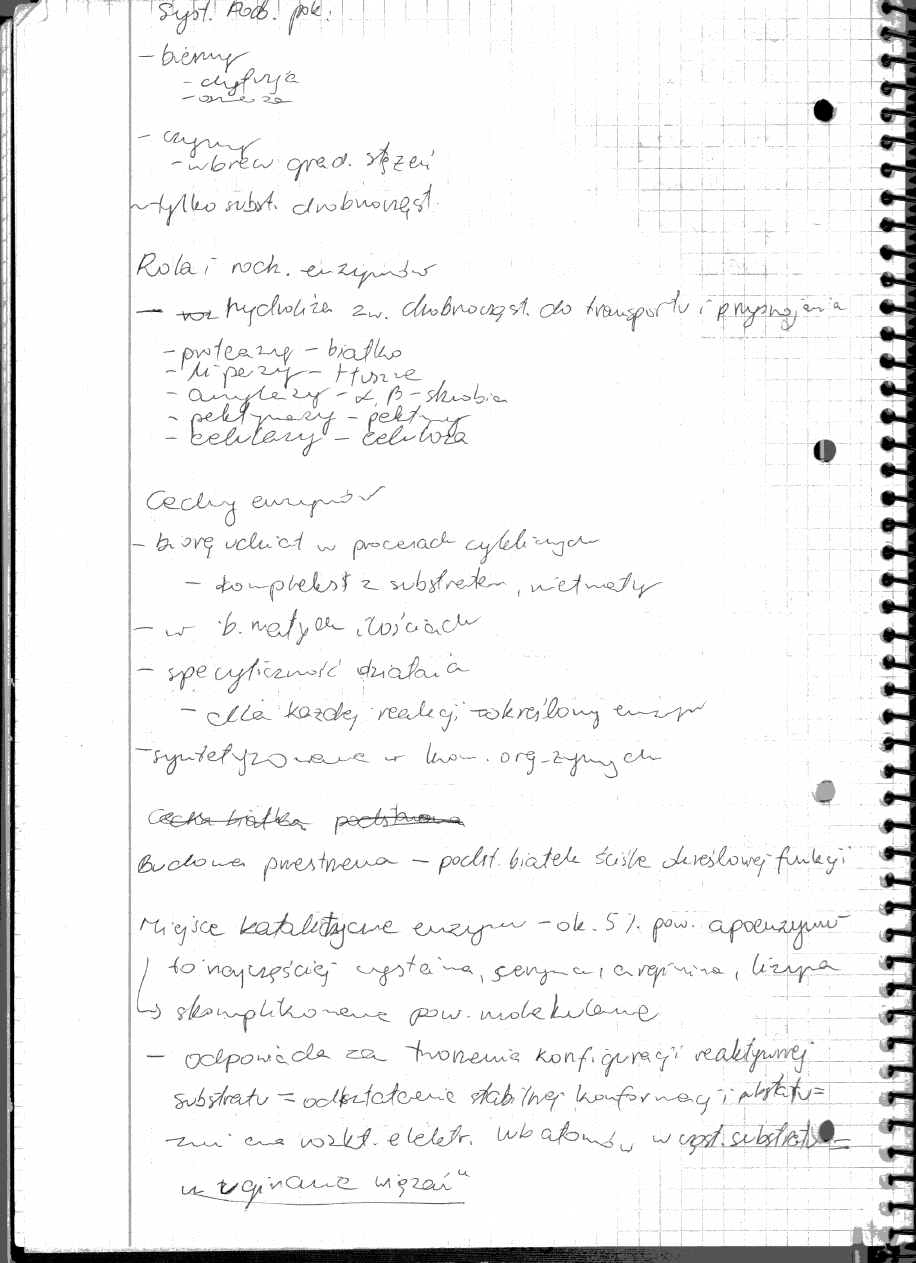 Syst. Pob. pok.
- bierny
- dyfuzja
- osmoza
- czynny
- wbrew grad. stężeń
- tylko subst. drobnocząst.
Rola i rodz. enzymów
- hydroliza zw. drobnocząst. do transportu i przyswojenia
- proteazy - białko
- lipazy - tłuszcze
- amylazy - α, β - skrobia
- pektynazy - pektyny
- celulazy - celuloza
Cechy enzymów
- biorę udział w procesach cyklicznych
- kompleks z substratem, nietrwały
- w b. małych ilościach
- specyficzność działania
- dla każdej reakcji określony enzym
- syntetyzowane w kom. org. żywych
Cecha białka
Budowa przestrzenna - podst. białek ściśle określonej funkcji
Miejsce katalityczne enzymu - ok. 5% pow. apoenzymu
to najczęściej cysteina, seryna, arginina, lizyna
↳ skomplikowane pow. molekularne
- odpowiada za tworzenia konfiguracji reaktywnej
substratu = odkształcenie stabilnej konformacji substratu =
zmiana rozkł. elektr. wb atomów w cząst. substratu =
"uginanie wiązań"